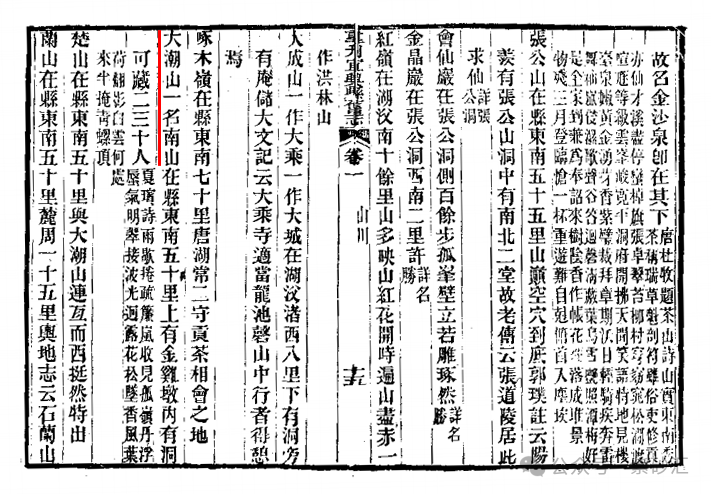 故名金沙泉卽在其下
唐杜牧題茶山詩山實東南秀
茶稱瑞草魁剖符雖俗吏修貢
亦仙才溪盡停蠻棹旗張卓翠苔柳村穿窈窕松澗渡
喧豗等級雲峯峻寬平洞府開拂天聞笑語特地見樓
臺泉嫩黃金湧芽香紫璧裁拜章期沃日輕騎疾奔雷
舞袖嵐侵澗歌聲谷答迴磬音藏葉鳥雪艷照潭梅好
是全家到兼爲奉詔來樹陰香作帳花徑落成堆景
物殘三月登臨愴一杯重遊難自剋俯首入塵埃
張公山在縣東南五十五里山巔空穴到底郭璞註云陽
羨有張公山洞中有南北二堂故老傳云張道陵居此
求仙
詳張
公洞
會仙巖在張公洞側百餘步孤峯壁立若雕琢然
詳名
勝
金晶巖在張公洞西南二里許
詳名
勝
紅嶺在湖㳇南十餘里山多映山紅花開時遍山盡赤一
重刊宜興縣舊志 卷一 山川 十五
作洪林山
大成山一作大乘一作大城在湖㳇渚西八里下有洞旁
有庵儲大文記云大乘寺適當龍池磬山中行者得憩
焉
啄木嶺在縣東南七十里唐湖常二守貢茶相會之地
大潮山一名南山在縣東南五十里上有金雞墩內有洞
可藏二三十人
夏詩雨歇捲疏簾嵐收見孤嶺丹浮
蜃氣明翠接波光迥露花松墜香風葉
荷翻影白雲何處
來半掩青螺頂
楚山在縣東南五十里與大潮山連亙而西挺然特出
蘭山在縣東南五十里麓周一十五里輿地志云石蘭山
公众号·紫砂汇